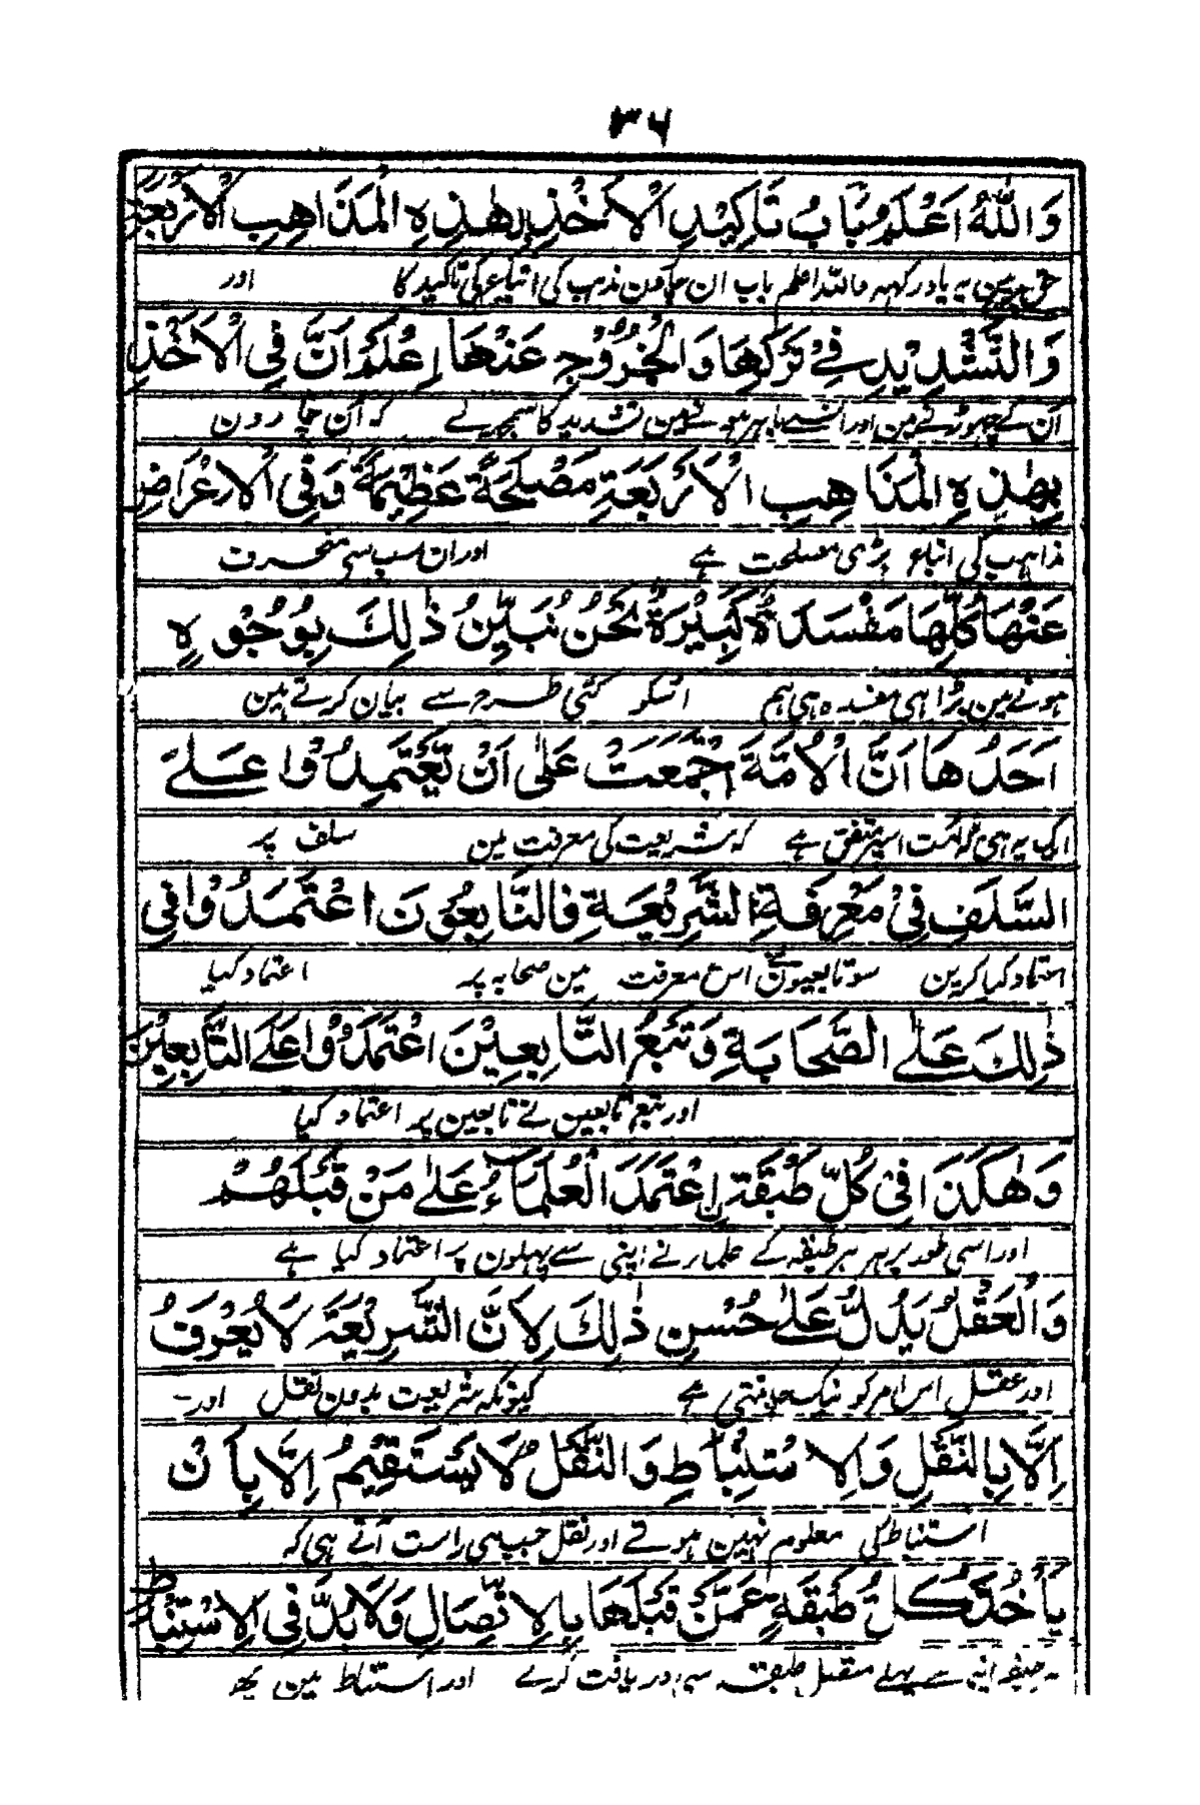 ۳۶
وَاللّٰهُ اَعْلَمُ بَابُ تَاكِيْدِ الْاَخْذِ بِهٰذِهِ الْمَذَاهِبِ الْاَرْبَعَةِ
باب ان چارون مذہب کی اتباع کی تاکید کا اور
وَالتَّشْدِيْدِ فِيْ تَرْكِهَا وَالْخُرُوْجِ عَنْهَا اِعْلَمْ اَنَّ فِي الْاَخْذِ
ان کے چھوڑنے مین اور انسے باہر ہونے مین تشدید کا سمجھ لے کہ ان چارون
بِهٰذِهِ الْمَذَاهِبِ الْاَرْبَعَةِ مَصْلَحَةً عَظِيْمَةً وَفِي الْاِعْرَاضِ
مذاہب کی اتباع بڑی مصلحت ہے اور ان سب سی منحرف
عَنْهَا كُلِّهَا مَفْسَدَةٌ كَبِيْرَةٌ نَحْنُ نُبَيِّنُ ذٰلِكَ بِوُجُوْهٍ
ہونے مین بڑا ہی مفسدہ ہی ہم اسکو کئی طرح سے بیان کرتے ہین
اَحَدُهَا اَنَّ الْاُمَّةَ اجْتَمَعَتْ عَلٰى اَنْ يَّعْتَمِدُوْا عَلَے
ایک یہ ہی کہ امت اسپر متفق ہے کہ شریعت کی معرفت مین سلف پر
السَّلَفِ فِيْ مَعْرِفَةِ الشَّرِيْعَةِ فَالتَّابِعُوْنَ اعْتَمَدُوْا فِي
اعتماد کیا کرین سو تابعیون نے اس معرفت مین صحابہ پر اعتماد کیا
ذٰلِكَ عَلَے الصَّحَابَةِ وَتَبَعُ التَّابِعِيْنَ اعْتَمَدُوْا عَلَے التَّابِعِيْنَ
اور تبع تابعین نے تابعین پر اعتماد کیا
وَهٰكَذَا فِيْ كُلِّ طَبَقَةٍ اِعْتَمَدَ الْعُلَمَاءُ عَلٰے مَنْ قَبْلَهُمْ
اور اسی طور پر ہر ہر طبقہ کے علماء نے اپنی سے پہلون پر اعتماد کیا ہے
وَالْعَقْلُ يَدُلُّ عَلٰے حُسْنِ ذٰلِكَ لِاَنَّ الشَّرِيْعَةَ لَا يُعْرَفُ
اور عقل اس امر کو نیک جانتی ہے کیونکہ شریعت بدون نقل اور
اِلَّا بِالنَّقْلِ وَالِاسْتِنْبَاطِ وَالنَّقْلُ لَا يَسْتَقِيْمُ اِلَّا بِاَنْ
استنباط کی معلوم نہین ہوتے اور نقل جبہی راست آتے ہی کہ
يَاْخُذَ كُلُّ طَبَقَةٍ عَمَّنْ قَبْلَهَا بِالِاتِّصَالِ وَلَابُدَّ فِي الِاسْتِنْبَاطِ
اپنے سے پہلے متصل طبقہ سے دریافت کرے اور استنباط مین